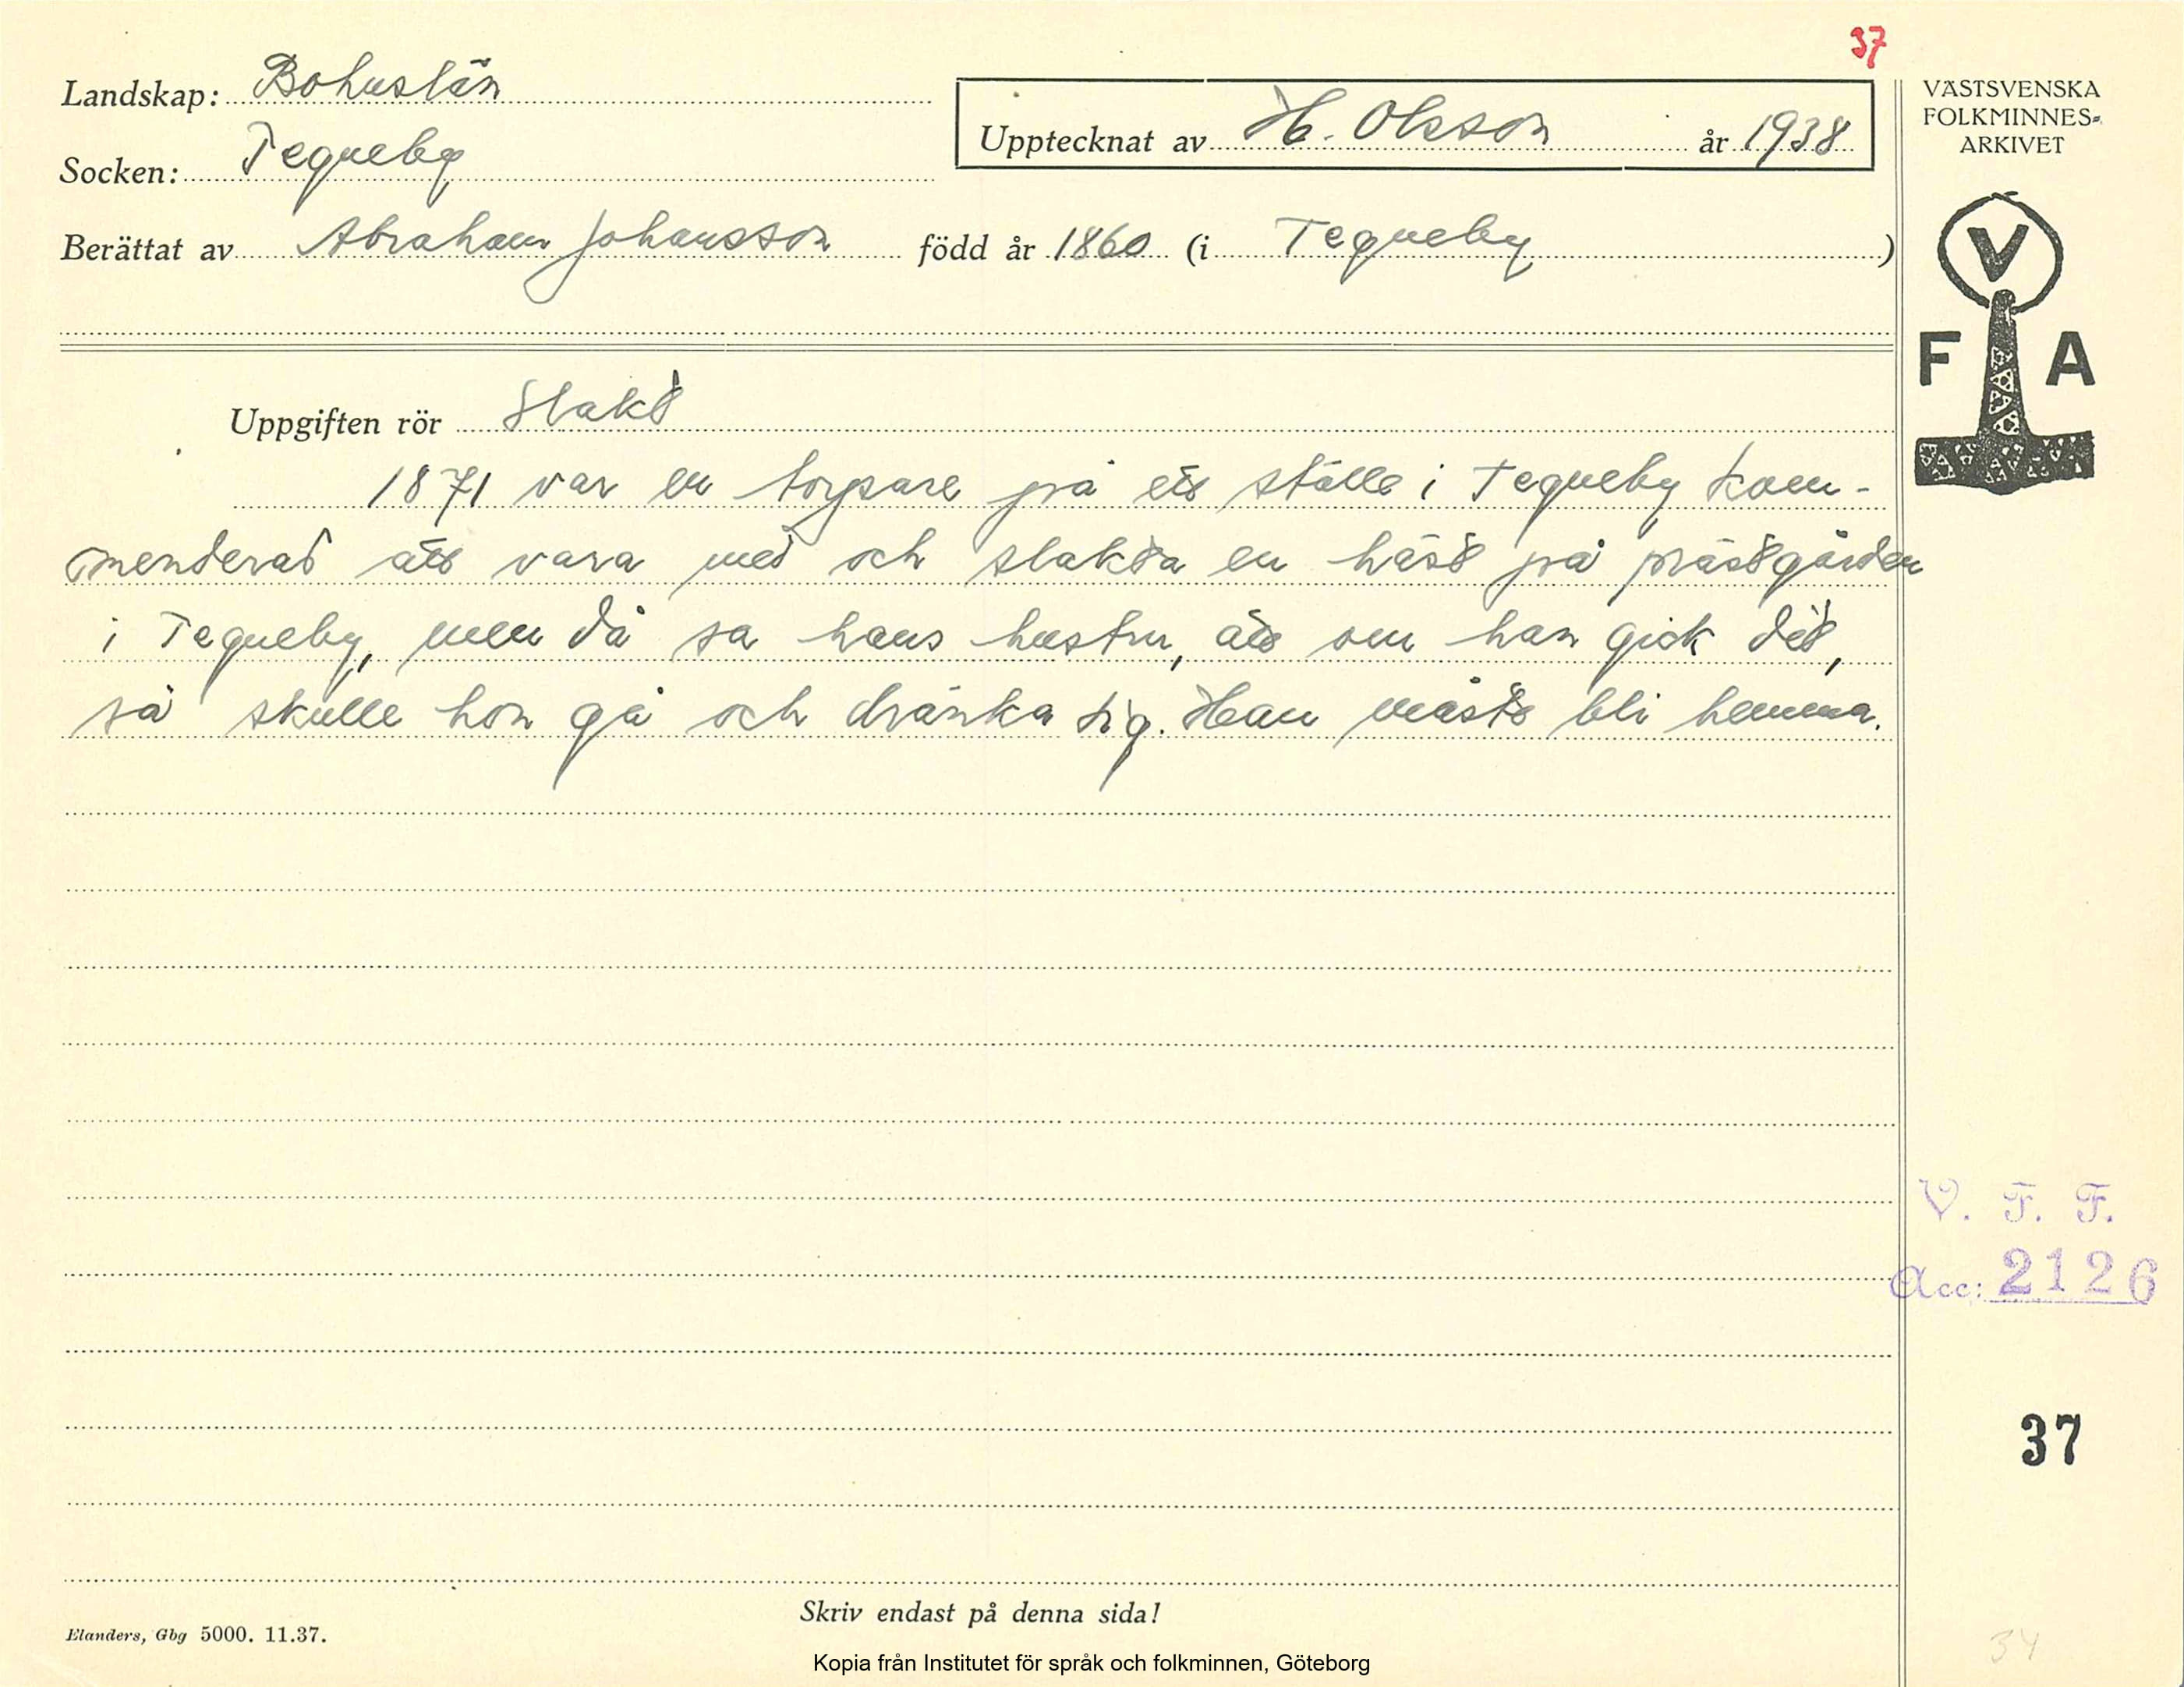 37
Landskap: Bohuslän
Socken: Tegneby
Upptecknat av H. Olsson år 1938
Berättat av Abraham Johansson född år 1860 (i Tegneby)
VÄSTSVENSKA
FOLKMINNES-
ARKIVET
V
F A
Uppgiften rör Slakt
1871 var en torpare på ett ställe i Tegneby kom-
menderad att vara med och slakta en häst på prästgården
i Tegneby, men då sa hans hustru, att om han gick dit,
så skulle hon gå och dränka sig. Han måste bli hemma.
V. F. F.
Acc: 2126
37
Skriv endast på denna sida!
Elanders, Gbg 5000. 11.37.
34
Kopia från Institutet för språk och folkminnen, Göteborg